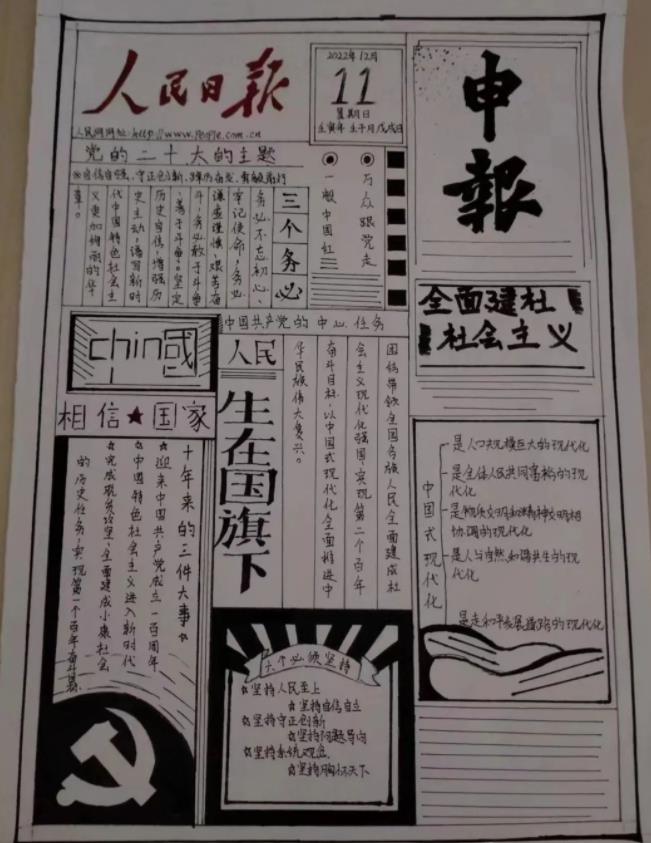 人民日报
人民网网址:http://www.people.com.cn
2022年12月
11
星期日
壬寅年 壬子月 戊戌日
申報
党的二十大的主题
自信自强、守正创新、踔厉奋发、勇毅前行
三个务必
务必不忘初心、
牢记使命,务必
谦虚谨慎、艰苦奋
斗,务必敢于斗争
、善于斗争。坚定
历史自信,增强历
史主动,谱写新时
代中国特色社会主
义更加绚丽的华
章。
万众跟党走
一般中国红
全面建社
社会主义
中国共产党的中心任务
团结带领全国各族人民全面建成社
会主义现代化强国、实现第二个百年
奋斗目标,以中国式现代化全面推进中
华民族伟大复兴。
chin國
相信★国家
人民
生在国旗下
十年来的三件大事
☆迎来中国共产党成立一百周年
☆中国特色社会主义进入新时代
☆完成脱贫攻坚、全面建成小康社会
的历史任务,实现第一个百年奋斗目标
中国式现代化
是人口规模巨大的现代化
是全体人民共同富裕的现
代化
是物质文明和精神文明相
协调的现代化
是人与自然和谐共生的现
代化
是走和平发展道路的现代化
六个必须坚持
☆坚持人民至上
☆坚持自信自立
☆坚持守正创新
☆坚持问题导向
☆坚持系统观念
☆坚持胸怀天下